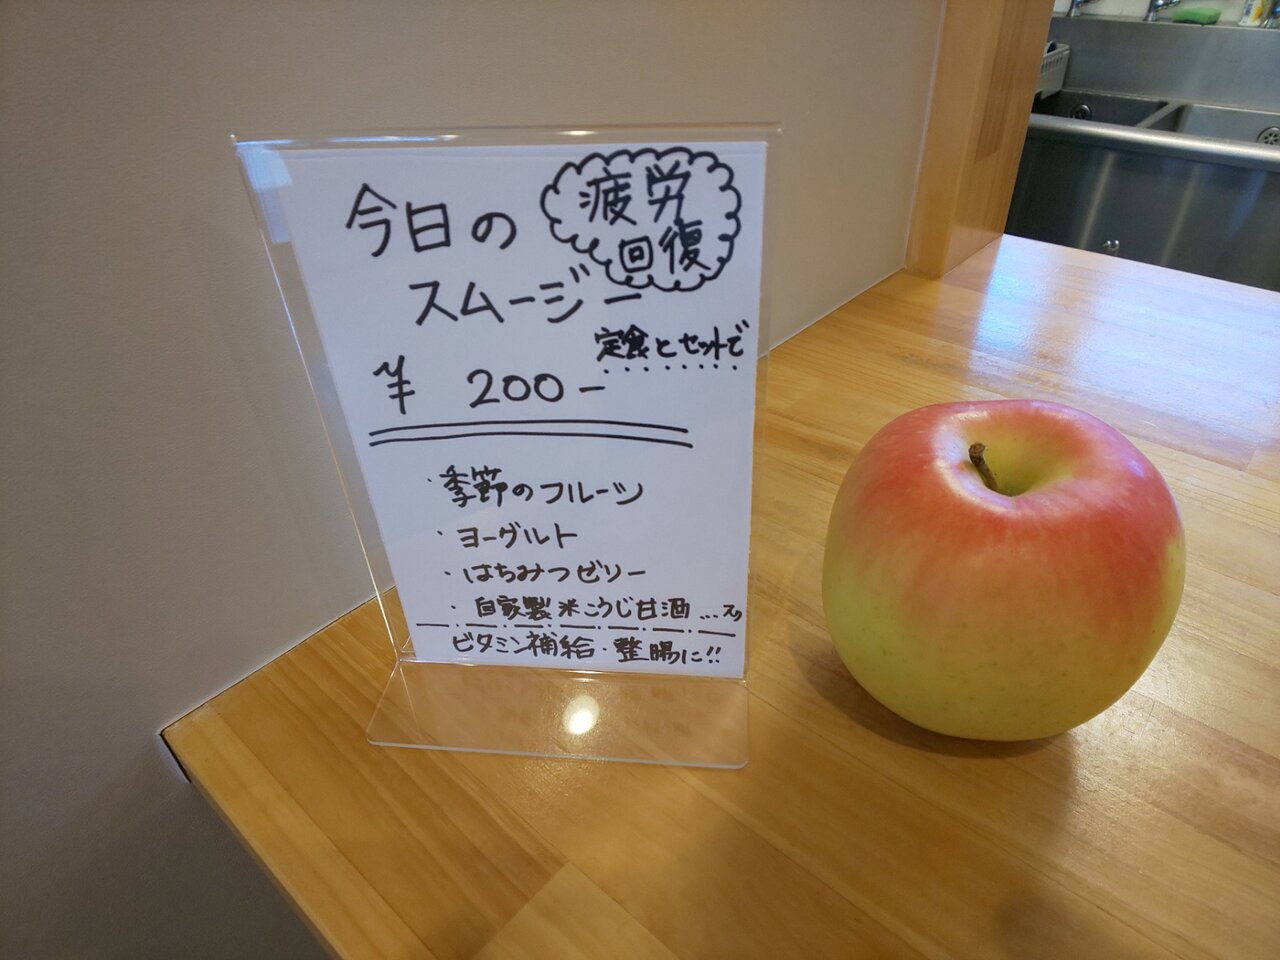 今日の
スムージー
疲労
回復
定食とセットで
¥ 200-
・季節のフルーツ
・ヨーグルト
・はちみつゼリー
・自家製米こうじ甘酒 ...入り
ビタミン補給・整腸に!!